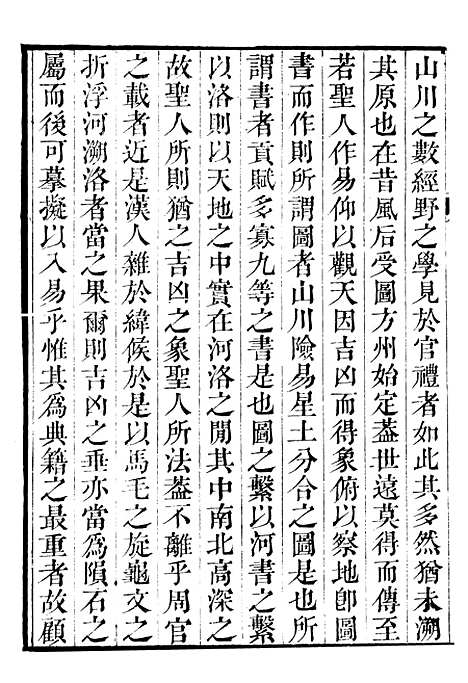 山川之數經野之學見於官禮者如此其多然猶未溯
其原也在昔風后受圖方州始定葢世遠莫得而傳至
若聖人作易仰以觀天因吉凶而得象俯以察地卽圖
書而作則所謂圖者山川險易星土分合之圖是也所
謂書者貢賦多寡九等之書是也圖之繫以河書之繫
以洛則以天地之中實在河洛之閒其中南北高深之
故聖人所則猶之吉凶之象聖人所法葢不離乎周官
之載者近是漢人雜於緯候於是以馬毛之旋龜文之
折浮河溯洛者當之果爾則吉凶之垂亦當爲隕石之
屬而後可摹擬以入易乎惟其爲典籍之最重者故顧